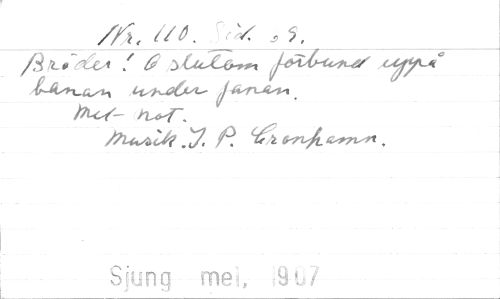 Nr. 110. Sid. 29.
Bröder! O slutom förbund uppå
banan under fanan.
Med not.
Musik. J. P. Cronhamn.
Sjung mej, 1907